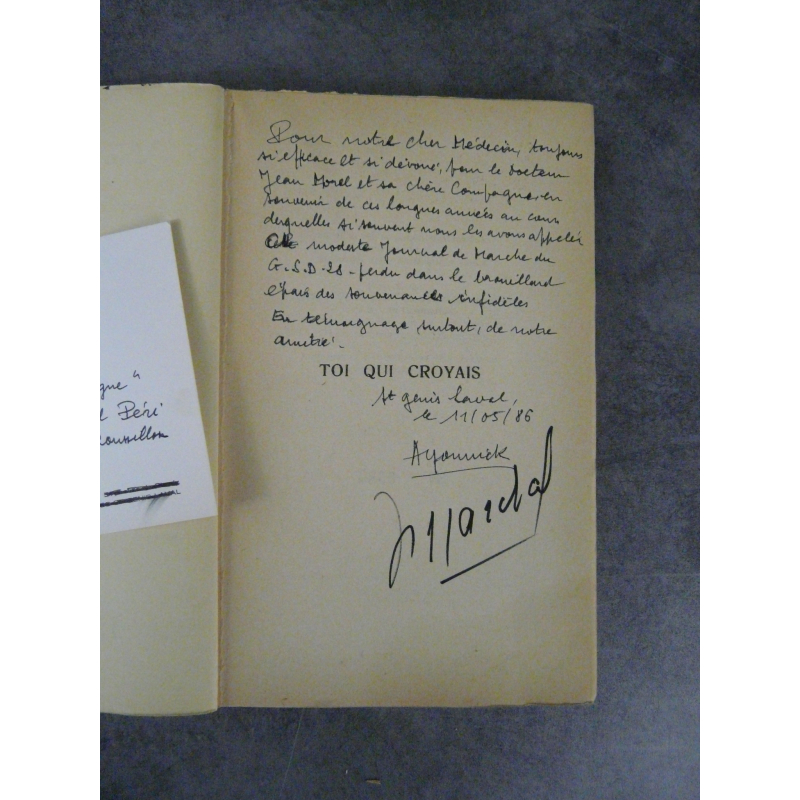 Pour notre cher Médecin, toujours
si efficace et si dévoué, pour le docteur
Jean Morel et sa chère Compagne en
souvenir de ces longues années au cours
desquelles si souvent nous les avons appelés
modeste Journal de Marche du
G.S.D. 28 - perdu dans le brouillard
épais des souvenances infidèles
En témoignage surtout, de notre
amitié.
TOI QUI CROYAIS
St genis Laval,
le 11/05/86
gne"
l Péri
oussillon